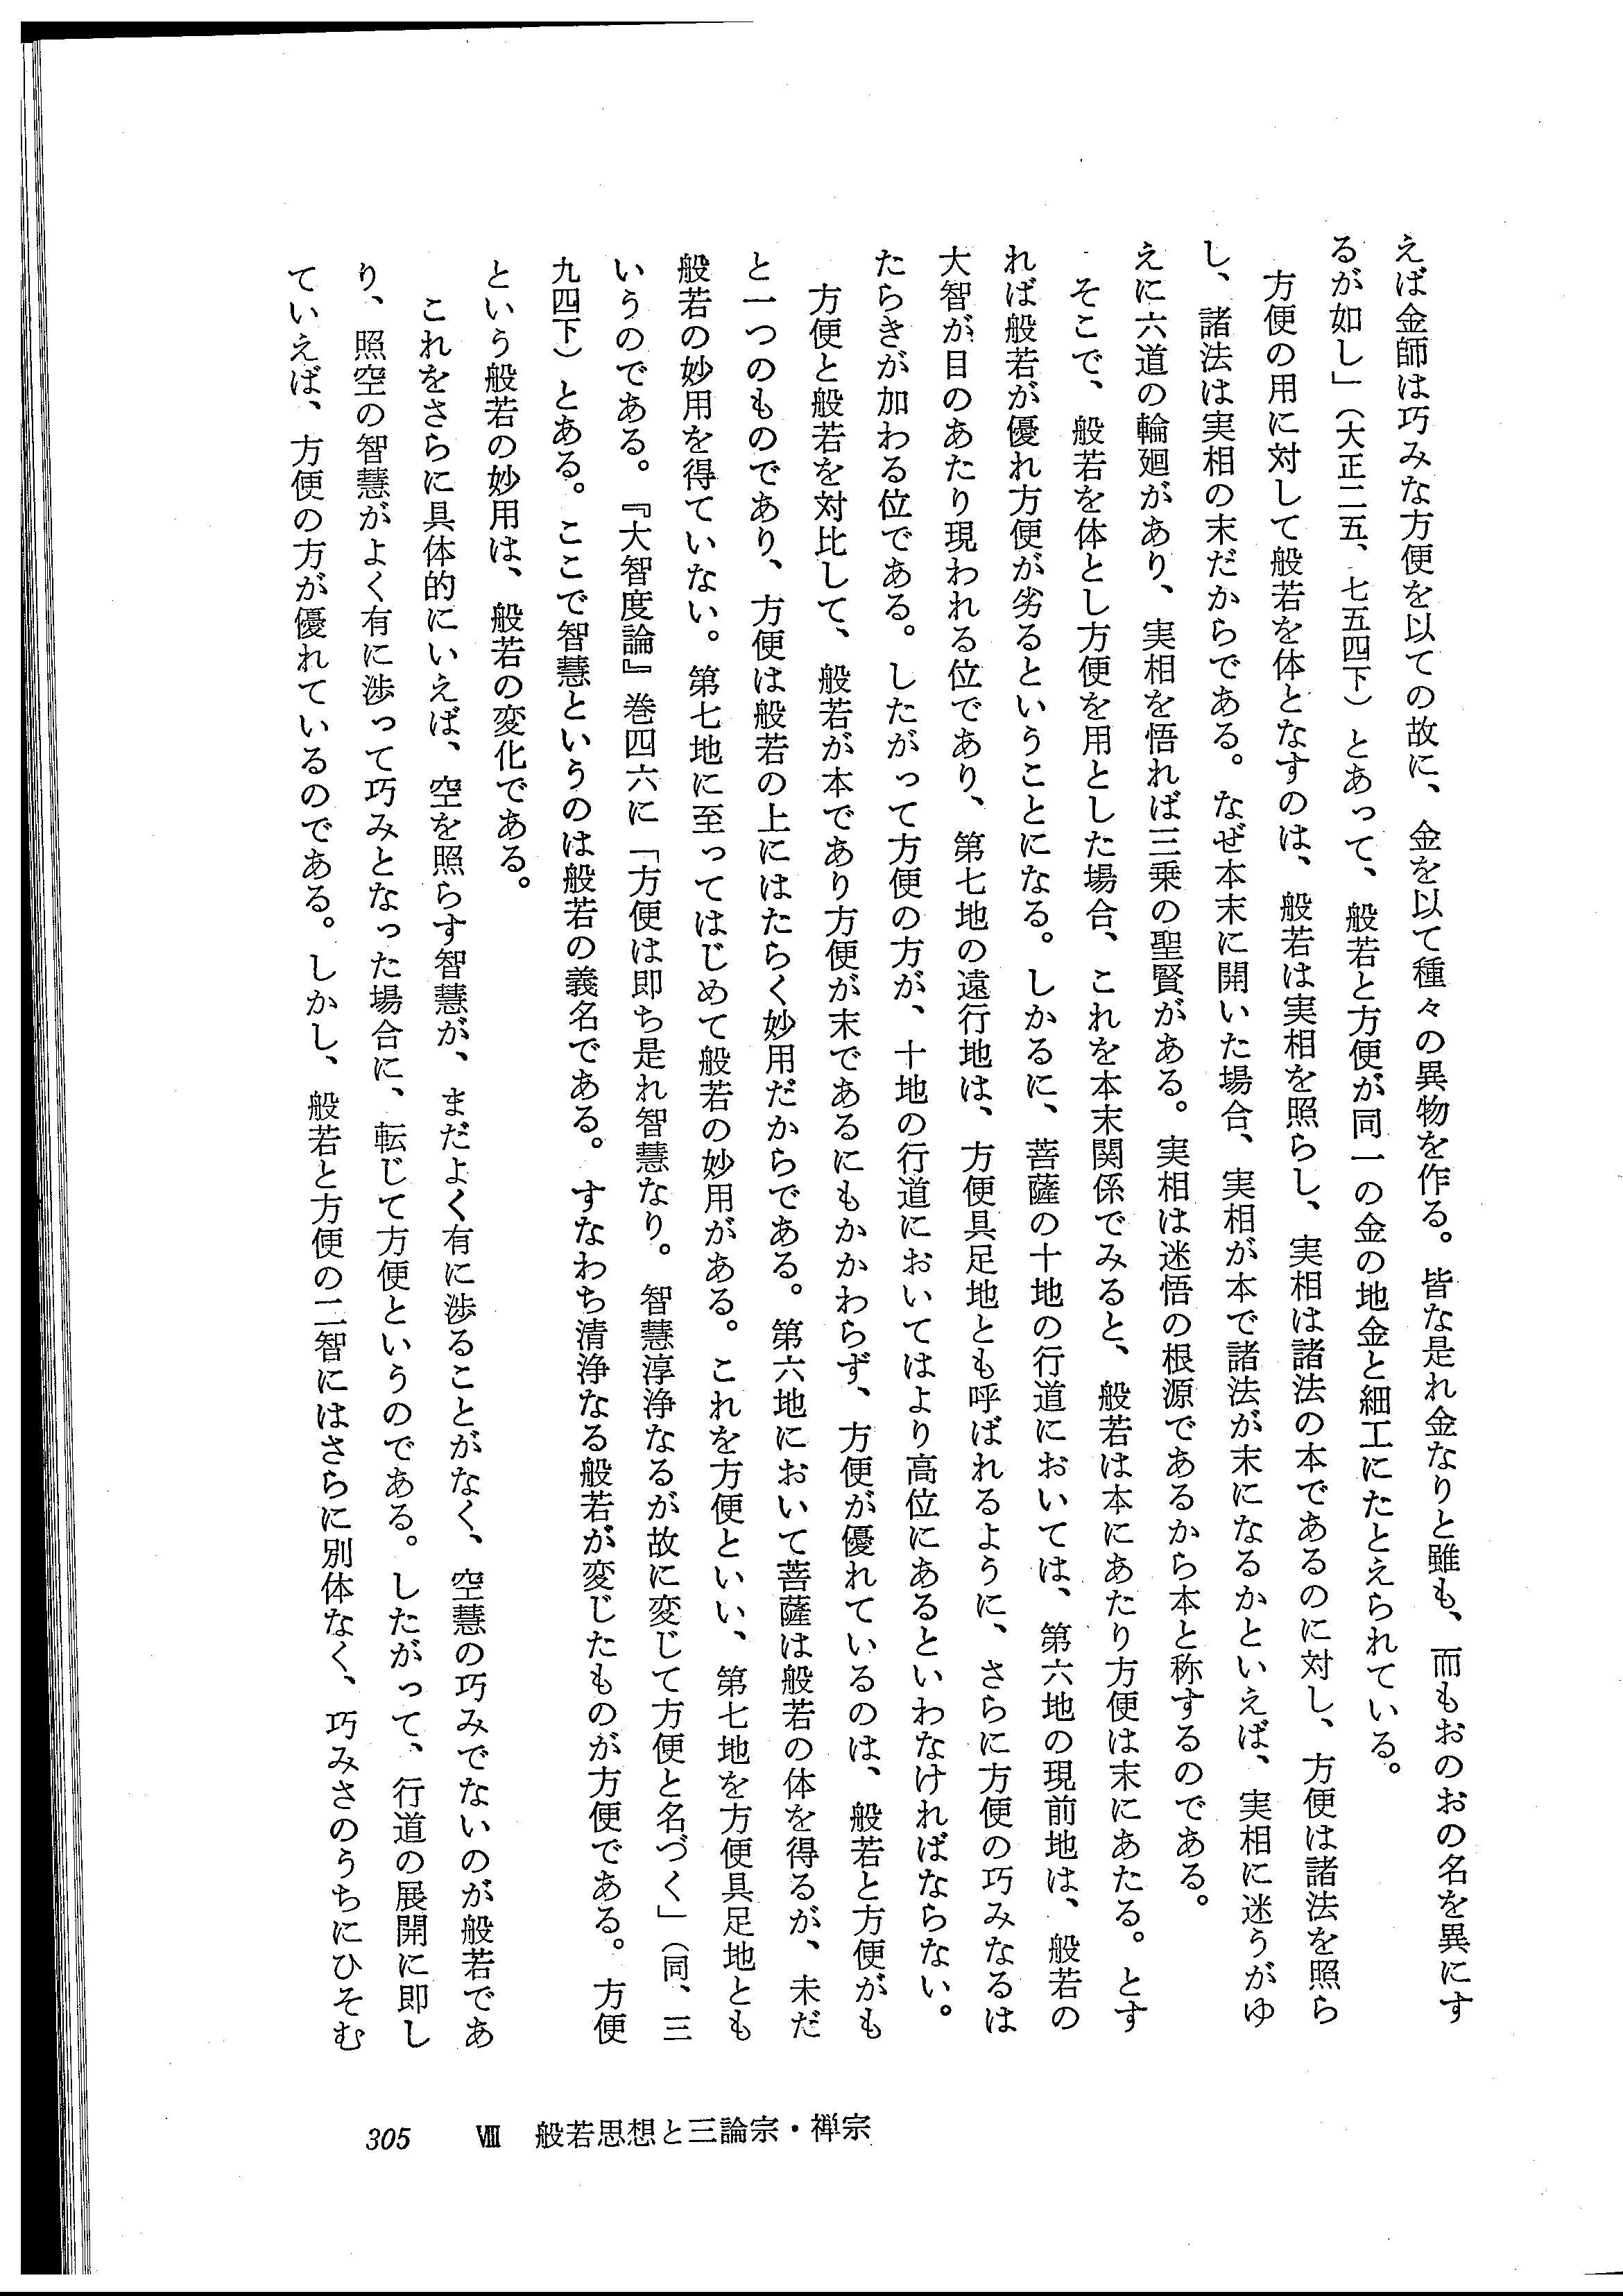 えば金師は巧みな方便を以ての故に、金を以て種々の異物を作る。皆な是れ金なりと雖も、而もおのおの名を異にす
るが如し」（大正二五、七五四下）とあって、般若と方便が同一の金の地金と細工にたとえられている。
方便の用に対して般若を体となすのは、般若は実相を照らし、実相は諸法の本であるのに対し、方便は諸法を照ら
し、諸法は実相の末だからである。なぜ本末に開いた場合、実相が本で諸法が末になるかといえば、実相に迷うがゆ
えに六道の輪廻があり、実相を悟れば三乗の聖賢がある。実相は迷悟の根源であるから本と称するのである。
そこで、般若を体とし方便を用とした場合、これを本末関係でみると、般若は本にあたり方便は末にあたる。とす
れば般若が優れ方便が劣るということになる。しかるに、菩薩の十地の行道においては、第六地の現前地は、般若の
大智が目のあたり現われる位であり、第七地の遠行地は、方便具足地とも呼ばれるように、さらに方便の巧みなるは
たらきが加わる位である。したがって方便の方が、十地の行道においてはより高位にあるといわなければならない。
方便と般若を対比して、般若が本であり方便が末であるにもかかわらず、方便が優れているのは、般若と方便がも
と一つのものであり、方便は般若の上にはたらく妙用だからである。第六地において菩薩は般若の体を得るが、未だ
般若の妙用を得ていない。第七地に至ってはじめて般若の妙用がある。これを方便といい、第七地を方便具足地とも
いうのである。『大智度論』巻四六に「方便は即ち是れ智慧なり。智慧淳浄なるが故に変じて方便と名づく」（同、三
九四下）とある。ここで智慧というのは般若の義名である。すなわち清浄なる般若が変じたものが方便である。方便
という般若の妙用は、般若の変化である。
これをさらに具体的にいえば、空を照らす智慧が、まだよく有に渉ることがなく、空慧の巧みでないのが般若であ
り、照空の智慧がよく有に渉って巧みとなった場合に、転じて方便というのである。したがって、行道の展開に即し
ていえば、方便の方が優れているのである。しかし、般若と方便の二智にはさらに別体なく、巧みさのうちにひそむ
305 Ⅷ 般若思想と三論宗・禅宗